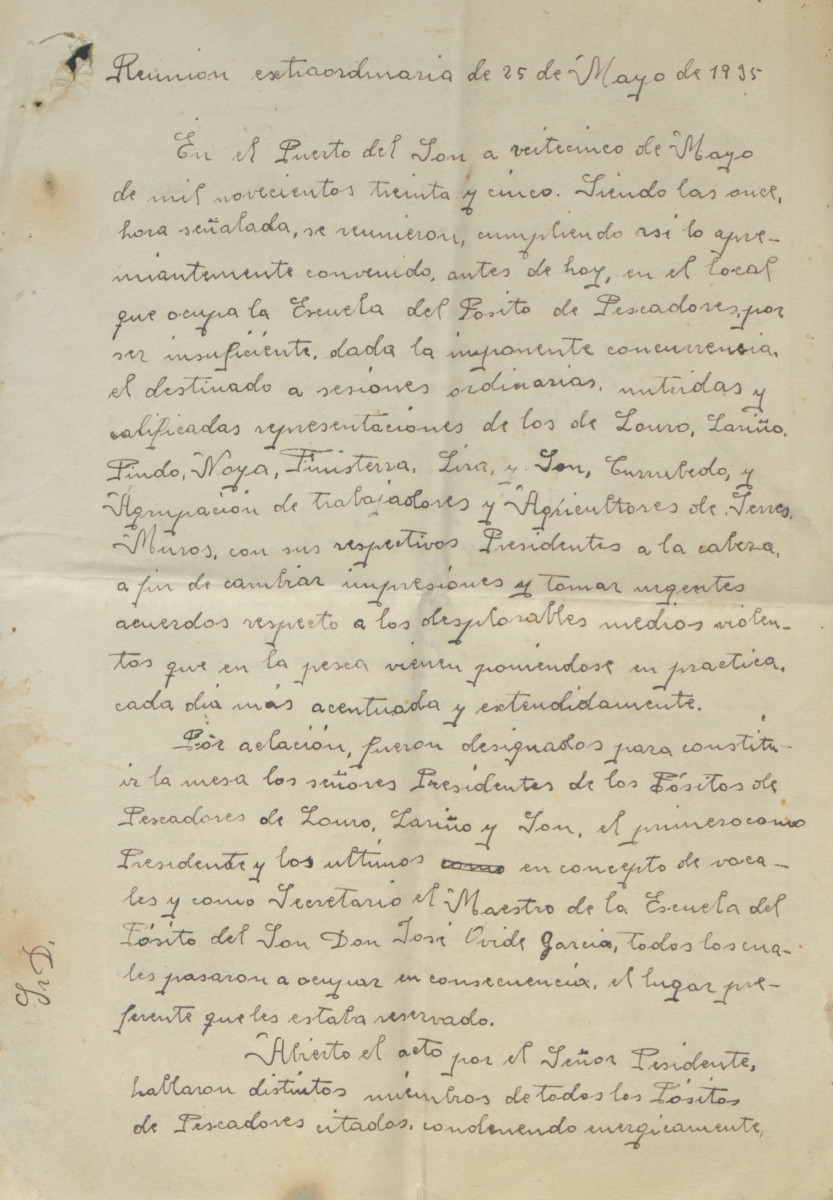 Reunion extraordinaria de 25 de Mayo de 1935
En el Puerto del Son a veitecinco de Mayo
de mil novecientos treinta y cinco. Siendo las once,
hora señalada, se reunieron, cumpliendo así lo apre-
miantemente convenido, antes de hoy, en el local
que ocupa la Escuela del Posito de Pescadores, por
ser insuficiente, dada la imponente concurrencia,
el destinado a sesiones ordinarias, nutridas y
calificadas representaciones de los de Louro, Lariño,
Pindo, Noya, Finisterra, Lira, y Son, Currubedo, y
Agrupación de trabajadores y Agricultores de Serres,
Muros, con sus respectivos Presidentes a la cabeza,
a fin de cambiar impresiones y tomar urgentes
acuerdos respecto a los desplorables medios violen-
tos que en la pesca vienen poniendose en practica,
cada día más acentuada y extendidamente.
Por aclación, fueron designados para constitu-
ir la mesa los señores Presidentes de los Pósitos de
Pescadores de Louro, Lariño y Son, el primero como
Presidente y los ultimos como en concepto de voca-
les y como Secretario el Maestro de la Escuela del
Pósito del Son Don José Ovide Garcia, todos los cua-
les pasaron a ocupar en consecuencia, el lugar pre-
ferente que les estaba reservado.
Abierto el acto por el Señor Pesidente,
hablaron distintos miembros de todos los Pósitos
de Pescadores citados, condenendo energicamente,
Sr D.